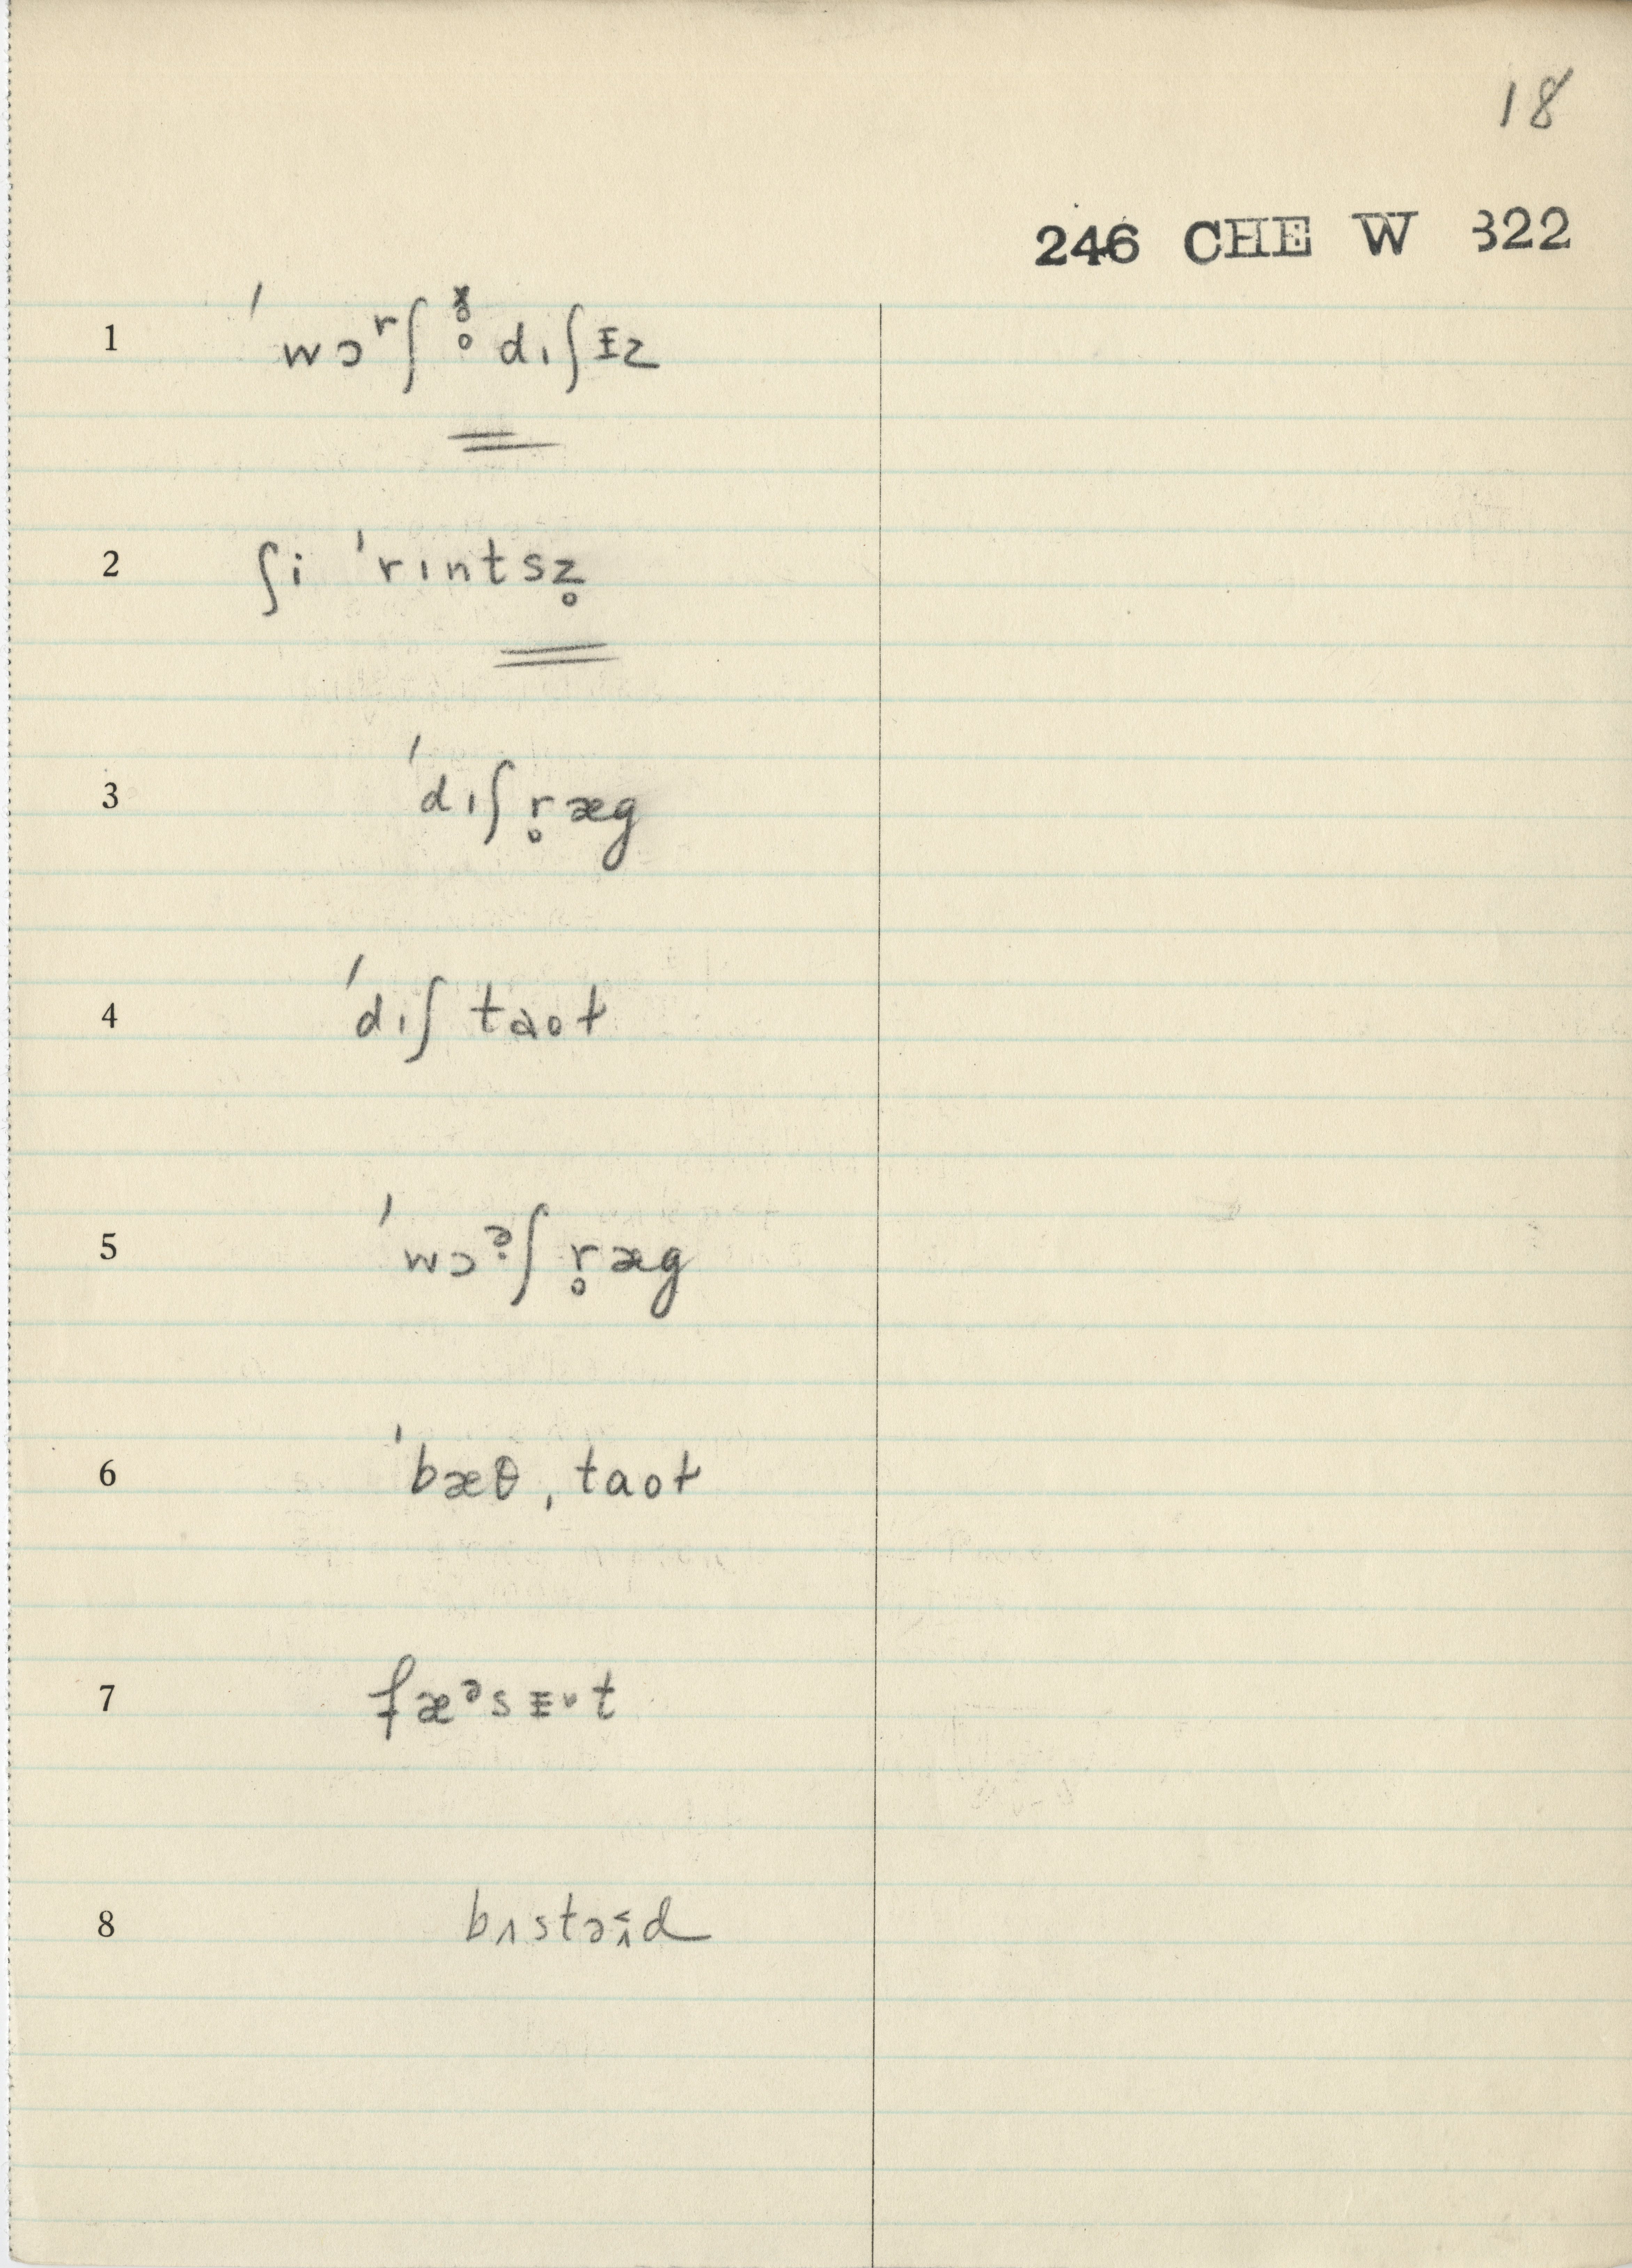 18
246 CHE W 322
1 ˈwɔʳʃ ð̥ dɪʃᵻz
2 ʃi ˈrɪntsz̥
3 ˈdɪʃ r̥æg
4 ˈdɪʃ taoɫ
5 ˈwɔˀʃ r̥æg
6 ˈbæθˌtaoɫ
7 fæᵊsᵻt
8 bʌstəd